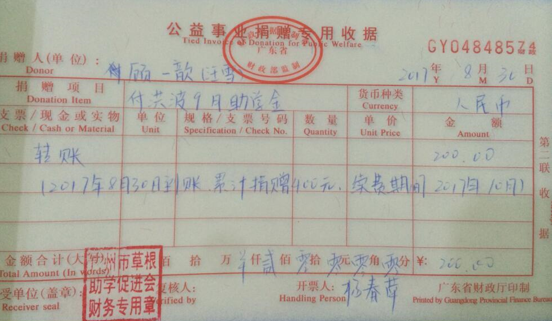 公益事业捐赠专用收据
Tied Invoice Donation for Public Welfare
广东省
财政部监制
GY048485Z4
捐赠人(单位): 顾一歆(汪雪)
Donor
2017年 8月 30日
Y M D
捐赠项目 付洪波9月助学金 货币种类 人民币
Donation Item Currency
支票/现金或实物 单位 规格/支票号码 数量 单价 金额
Check / Cash or Material Unit Specification / Check No. Quantity Unit Price Amount
转账 200.00
(2017年8月30日到账,累计捐赠400元,续费期间2017年10月)
金额合计(大写) 佰 拾 万 仟 贰 佰 零 拾 零 元 零 角 零 分 ¥: 200.00
Total Amount (In words)
州市草根
助学促进会
财务专用章
接受单位(盖章): 复核人: 开票人: 杨春萍 广东省财政厅印制
Receiver seal Verified by Handling Person Printed by Guangdong Provincial Finance Bureau
第二联收据